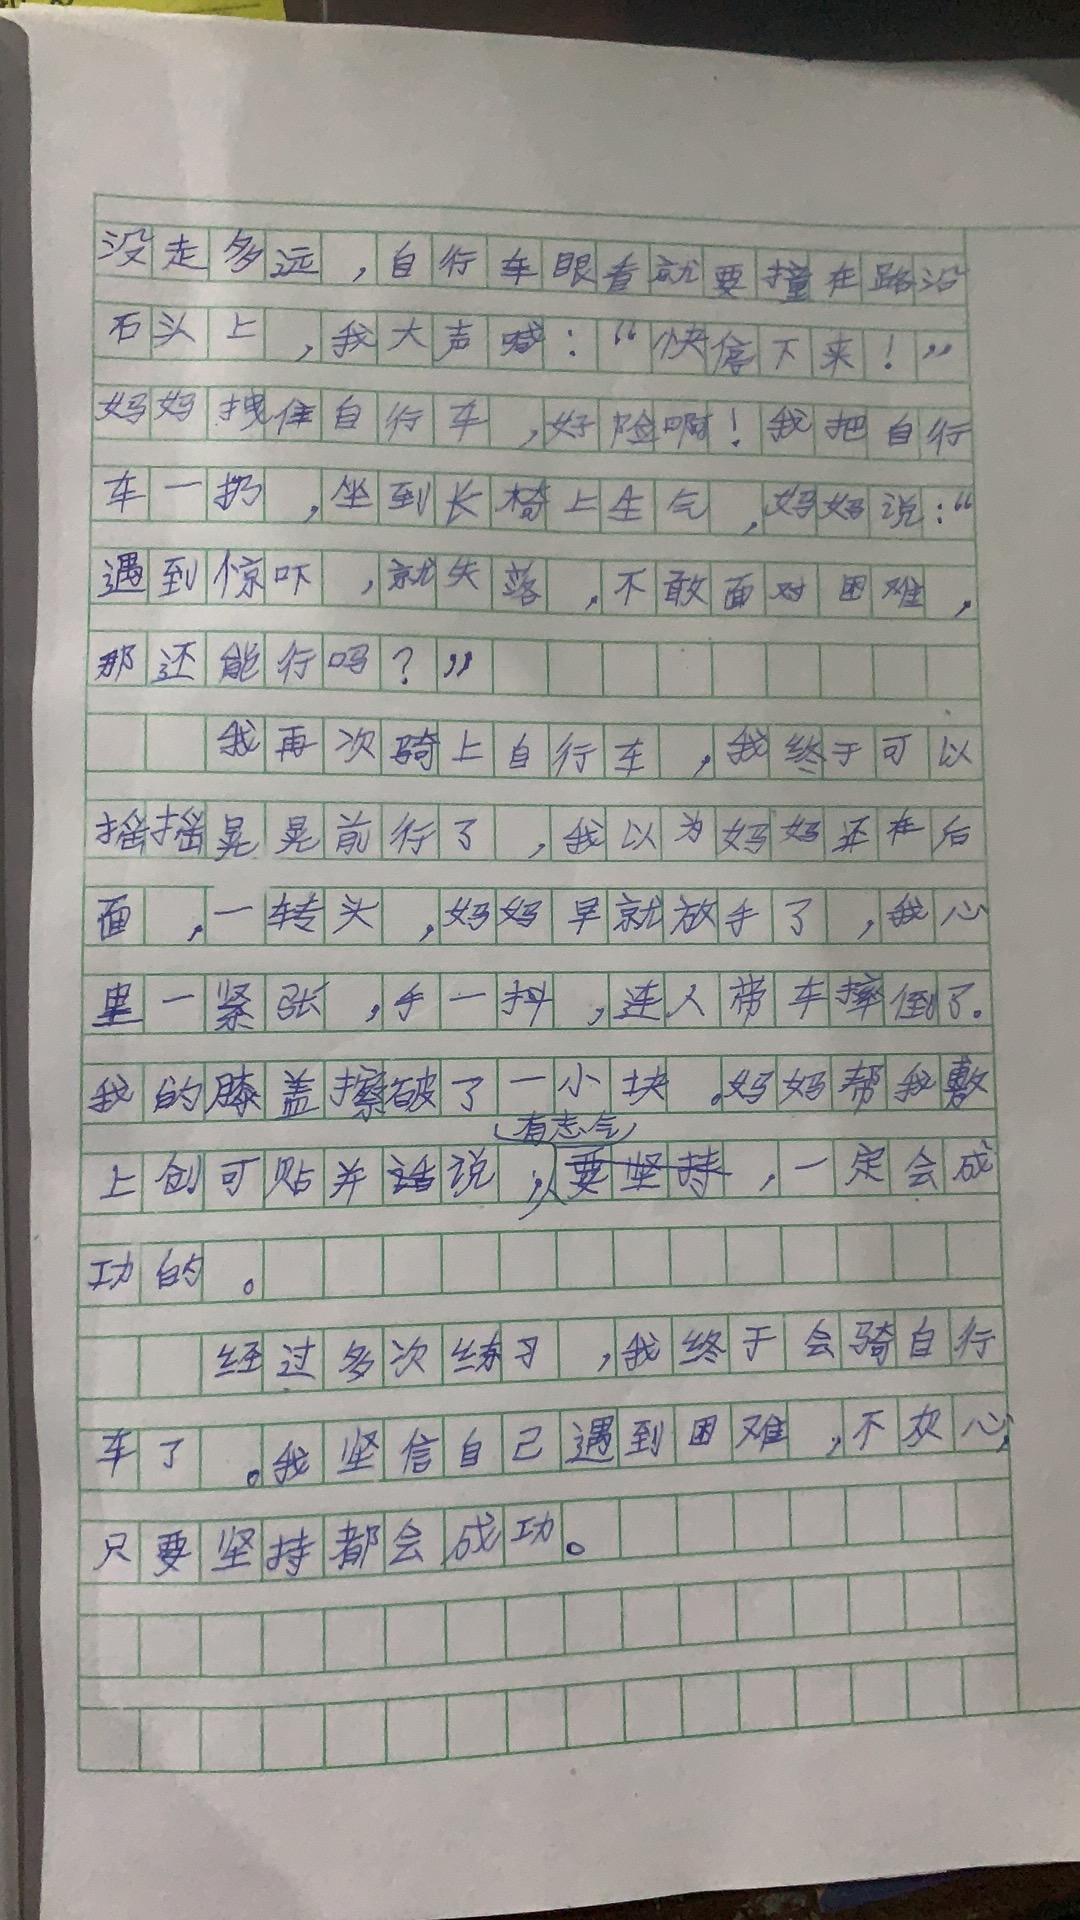 没走多远，自行车眼看就要撞在路沿
石头上，我大声喊：“快停下来！”
妈妈拽住自行车，好险啊！我把自行
车一扔，坐到长椅上生气，妈妈说：“
遇到惊吓，就失落，不敢面对困难，
那还能行吗？”
我再次骑上自行车，我终于可以
摇摇晃晃前行了，我以为妈妈还在后
面，一转头，妈妈早就放手了，我心
里一紧张，手一抖，连人带车摔倒了。
我的膝盖擦破了一小块。妈妈帮我敷
（有志气）
上创可贴并说，人要坚持，一定会成
功的。
经过多次练习，我终于会骑自行
车了。我坚信自己遇到困难，不灰心，
只要坚持都会成功。